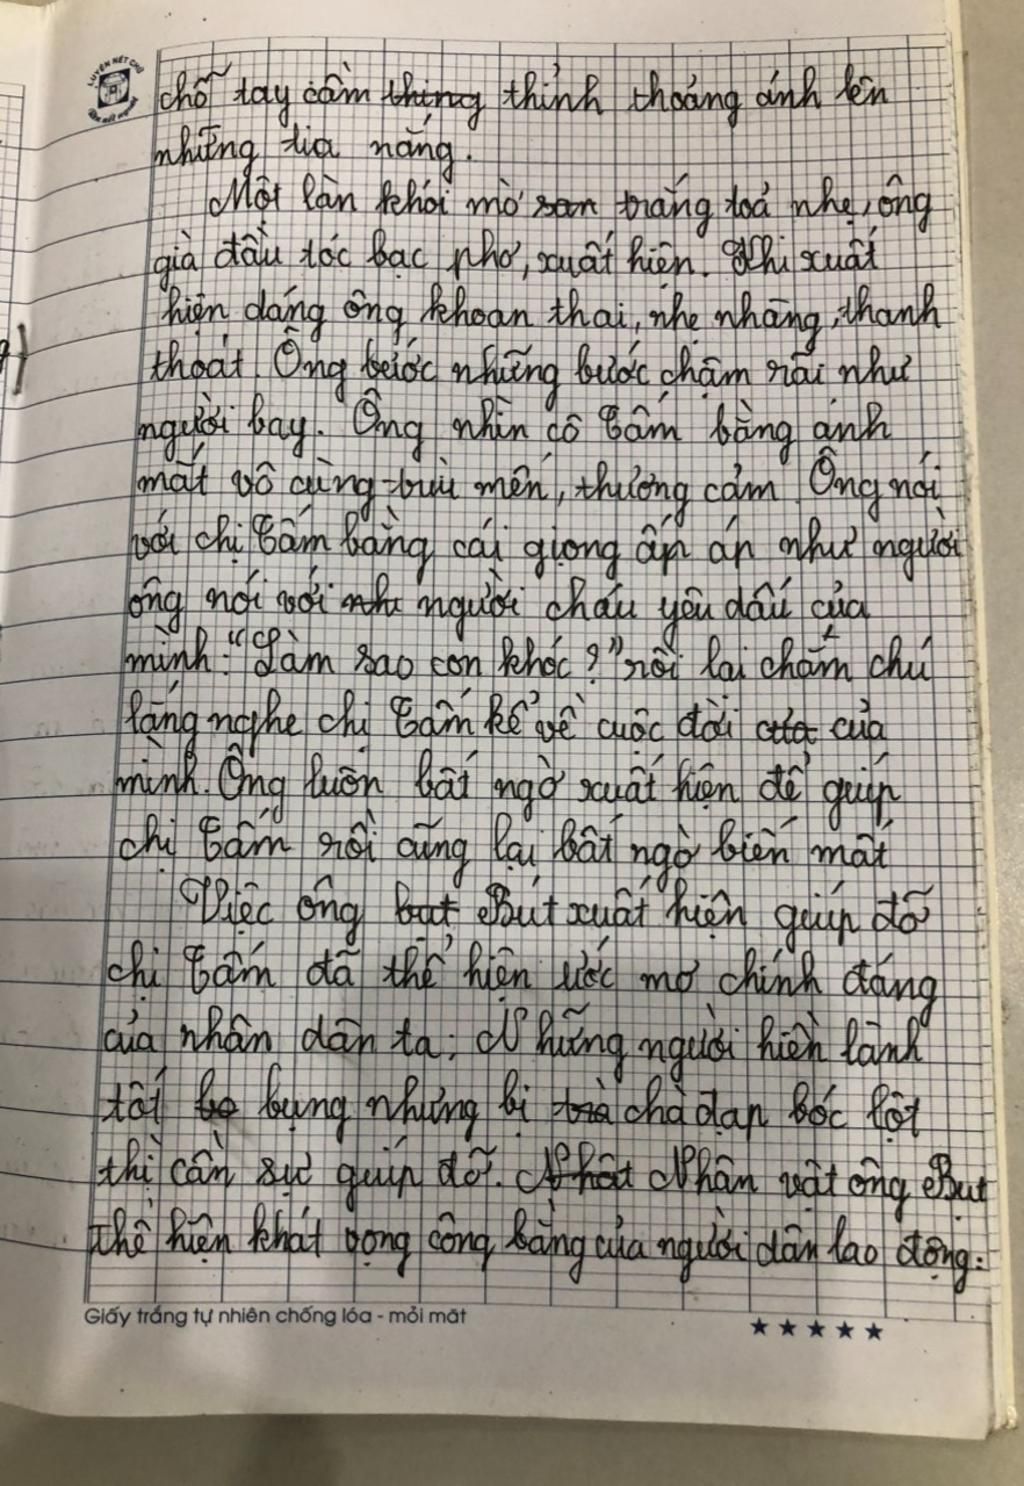 LUYỆN NÉT CHỮ
chỗ tay cầm thỉnh thoảng ánh lên
những tia nắng.
Một làn khói mờ trắng toả nhẹ, ông
già đầu tóc bạc phơ, xuất hiện. Khi xuất
hiện dáng ông khoan thai, nhẹ nhàng, thanh
thoát. Ông bước những bước chậm rãi như
người bay. Ông nhìn cô Tấm bằng ánh
mắt vô cùng trìu mến, thương cảm. Ông nói
với chị Tấm bằng cái giọng ấm áp như người
ông nói với người cháu yêu dấu của
mình: "Làm sao con khóc?" rồi lại chăm chú
lắng nghe chị Tấm kể về cuộc đời của
mình. Ông luôn bất ngờ xuất hiện để giúp
chị Tấm rồi cũng lại bất ngờ biến mất
Việc ông Bụt xuất hiện giúp đỡ
chị Tấm đã thể hiện ước mơ chính đáng
của nhân dân ta: Những người hiền lành
tốt bụng nhưng bị chà đạp bóc lột
thì cần sự giúp đỡ. Nhân vật ông Bụt
thể hiện khát vọng công bằng của người dân lao động.
Giấy trắng tự nhiên chống lóa - mỏi mắt